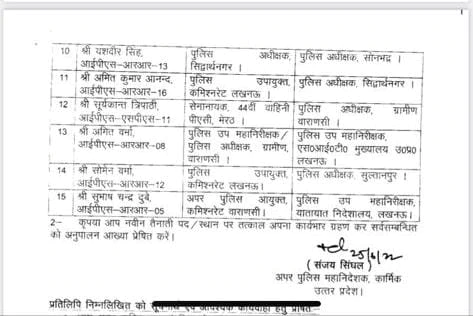 10 श्री यशवीर सिंह, पुलिस अधीक्षक, पुलिस अधीक्षक, सोनभद्र ।
आईपीएस-आरआर-13 सिद्धार्थनगर ।
11 श्री अमित कुमार आनन्द, पुलिस उपायुक्त, पुलिस अधीक्षक, सिद्धार्थनगर ।
आईपीएस-आरआर-16 कमिश्नरेट लखनऊ ।
12 श्री सूर्यकान्त त्रिपाठी, सेनानायक, 44वीं वाहिनी पुलिस अधीक्षक, ग्रामीण
आईपीएस-एसपीएस-11 पीएसी, मेरठ । वाराणसी ।
13 श्री अमित वर्मा, पुलिस उप महानिरीक्षक/ पुलिस उप महानिरीक्षक,
आईपीएस-आरआर-08 पुलिस अधीक्षक, ग्रामीण, एस०आई०टी० मुख्यालय उ०प्र०
वाराणसी । लखनऊ ।
14 श्री सोमेन वर्मा, पुलिस उपायुक्त, पुलिस अधीक्षक, सुल्तानपुर ।
आईपीएस-आरआर-12 कमिश्नरेट लखनऊ।
15 श्री सुभाष चन्द्र दुबे, अपर पुलिस आयुक्त, पुलिस उप महानिरीक्षक,
आईपीएस-आरआर-05 कमिश्नरेट वाराणसी। यातायात निदेशालय, लखनऊ।
2- कृपया आप नवीन तैनाती पद/स्थान पर तत्काल अपना कार्यभार ग्रहण कर सर्वसम्बन्धित
को अनुपालन आख्या प्रेषित करें।
25/6/22
( संजय सिंघल )
अपर पुलिस महानिदेशक, कार्मिक
उत्तर प्रदेश।
प्रतिलिपि निम्नलिखित को सूचनार्थ एवं आवश्यक कार्यवाही हेतु प्रेषित-